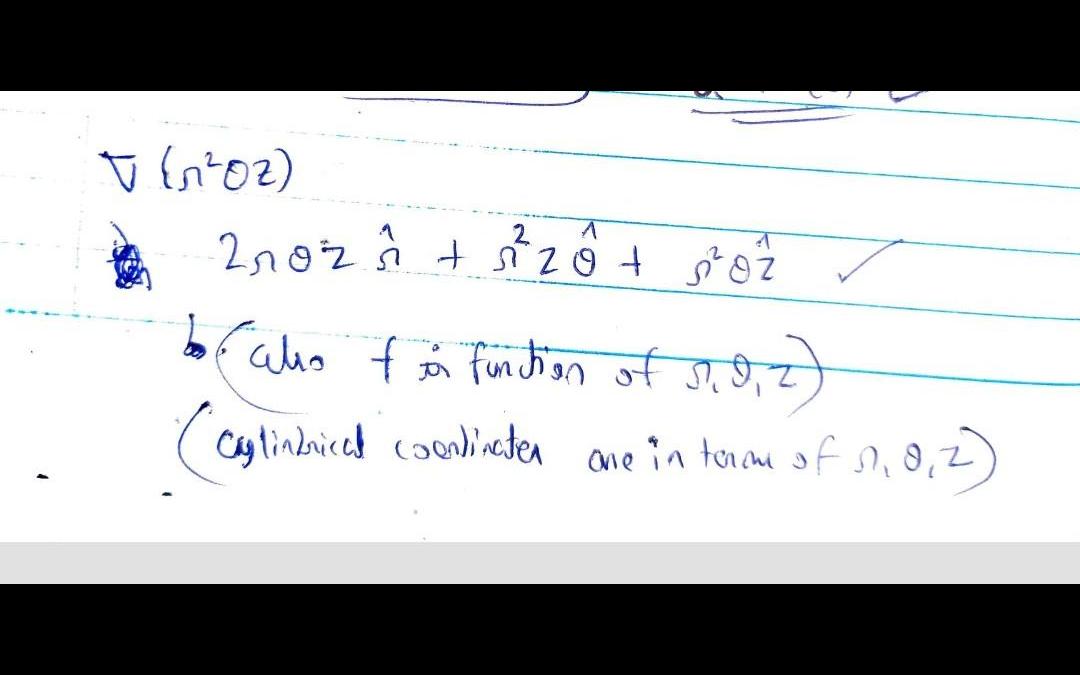 ∇ (r²θz)
2rθz r̂ + r²z θ̂ + r²θẑ ✓
(also f is function of r, θ, z)
(cylindrical coordinates are in terms of r, θ, z)